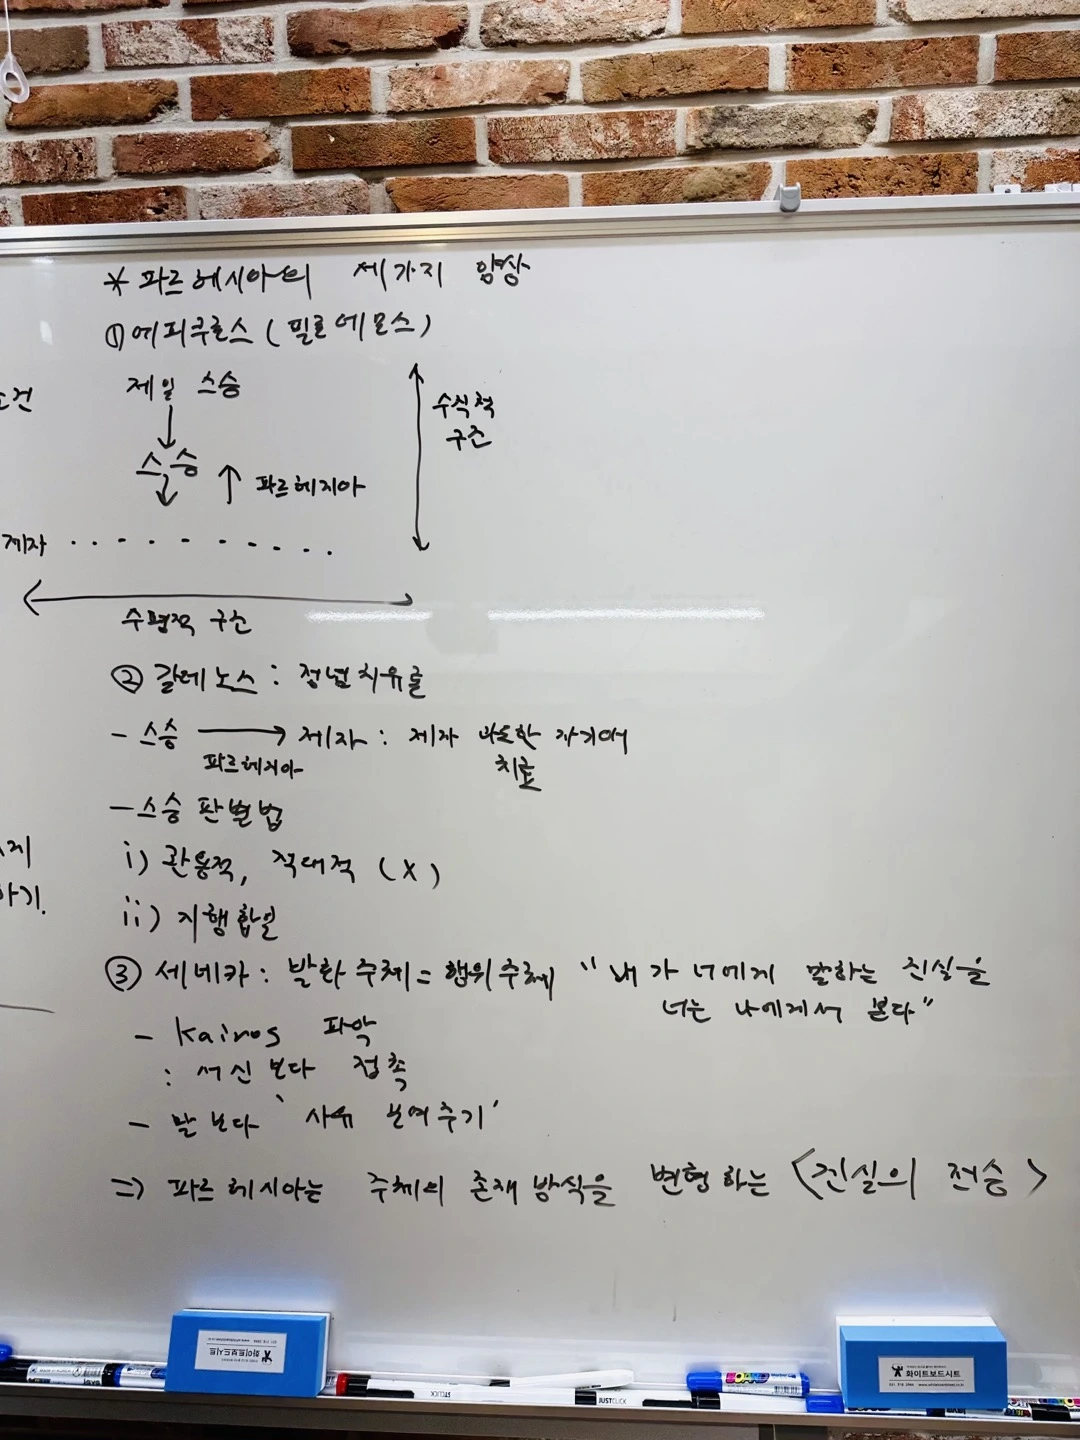 * 파르헤시아의 세가지 양상
① 에피쿠로스 (필로데모스)
조건
제일 스승
수직적
구조
스승
↑ 파르헤지아
제자 . . . . . . . . . .
수평적 구조
② 갈레노스 : 정념치유론
- 스승 → 제자 : 제자 과도한 자기애
파르헤지아 치료
- 스승 판별법
i) 관용적, 적대적 (X)
ii) 지행합일
③ 세네카 : 발화주체 = 행위주체 "내가 너에게 말하는 진실을
너는 나에게서 본다"
- Kairos 파악
: 서신보다 접촉
- 말보다 '사유 보여주기'
⇒ 파르헤시아는 주체의 존재방식을 변형하는 <진실의 전승>
화이트보드시트
화이트보드시트
JUSTCLICK